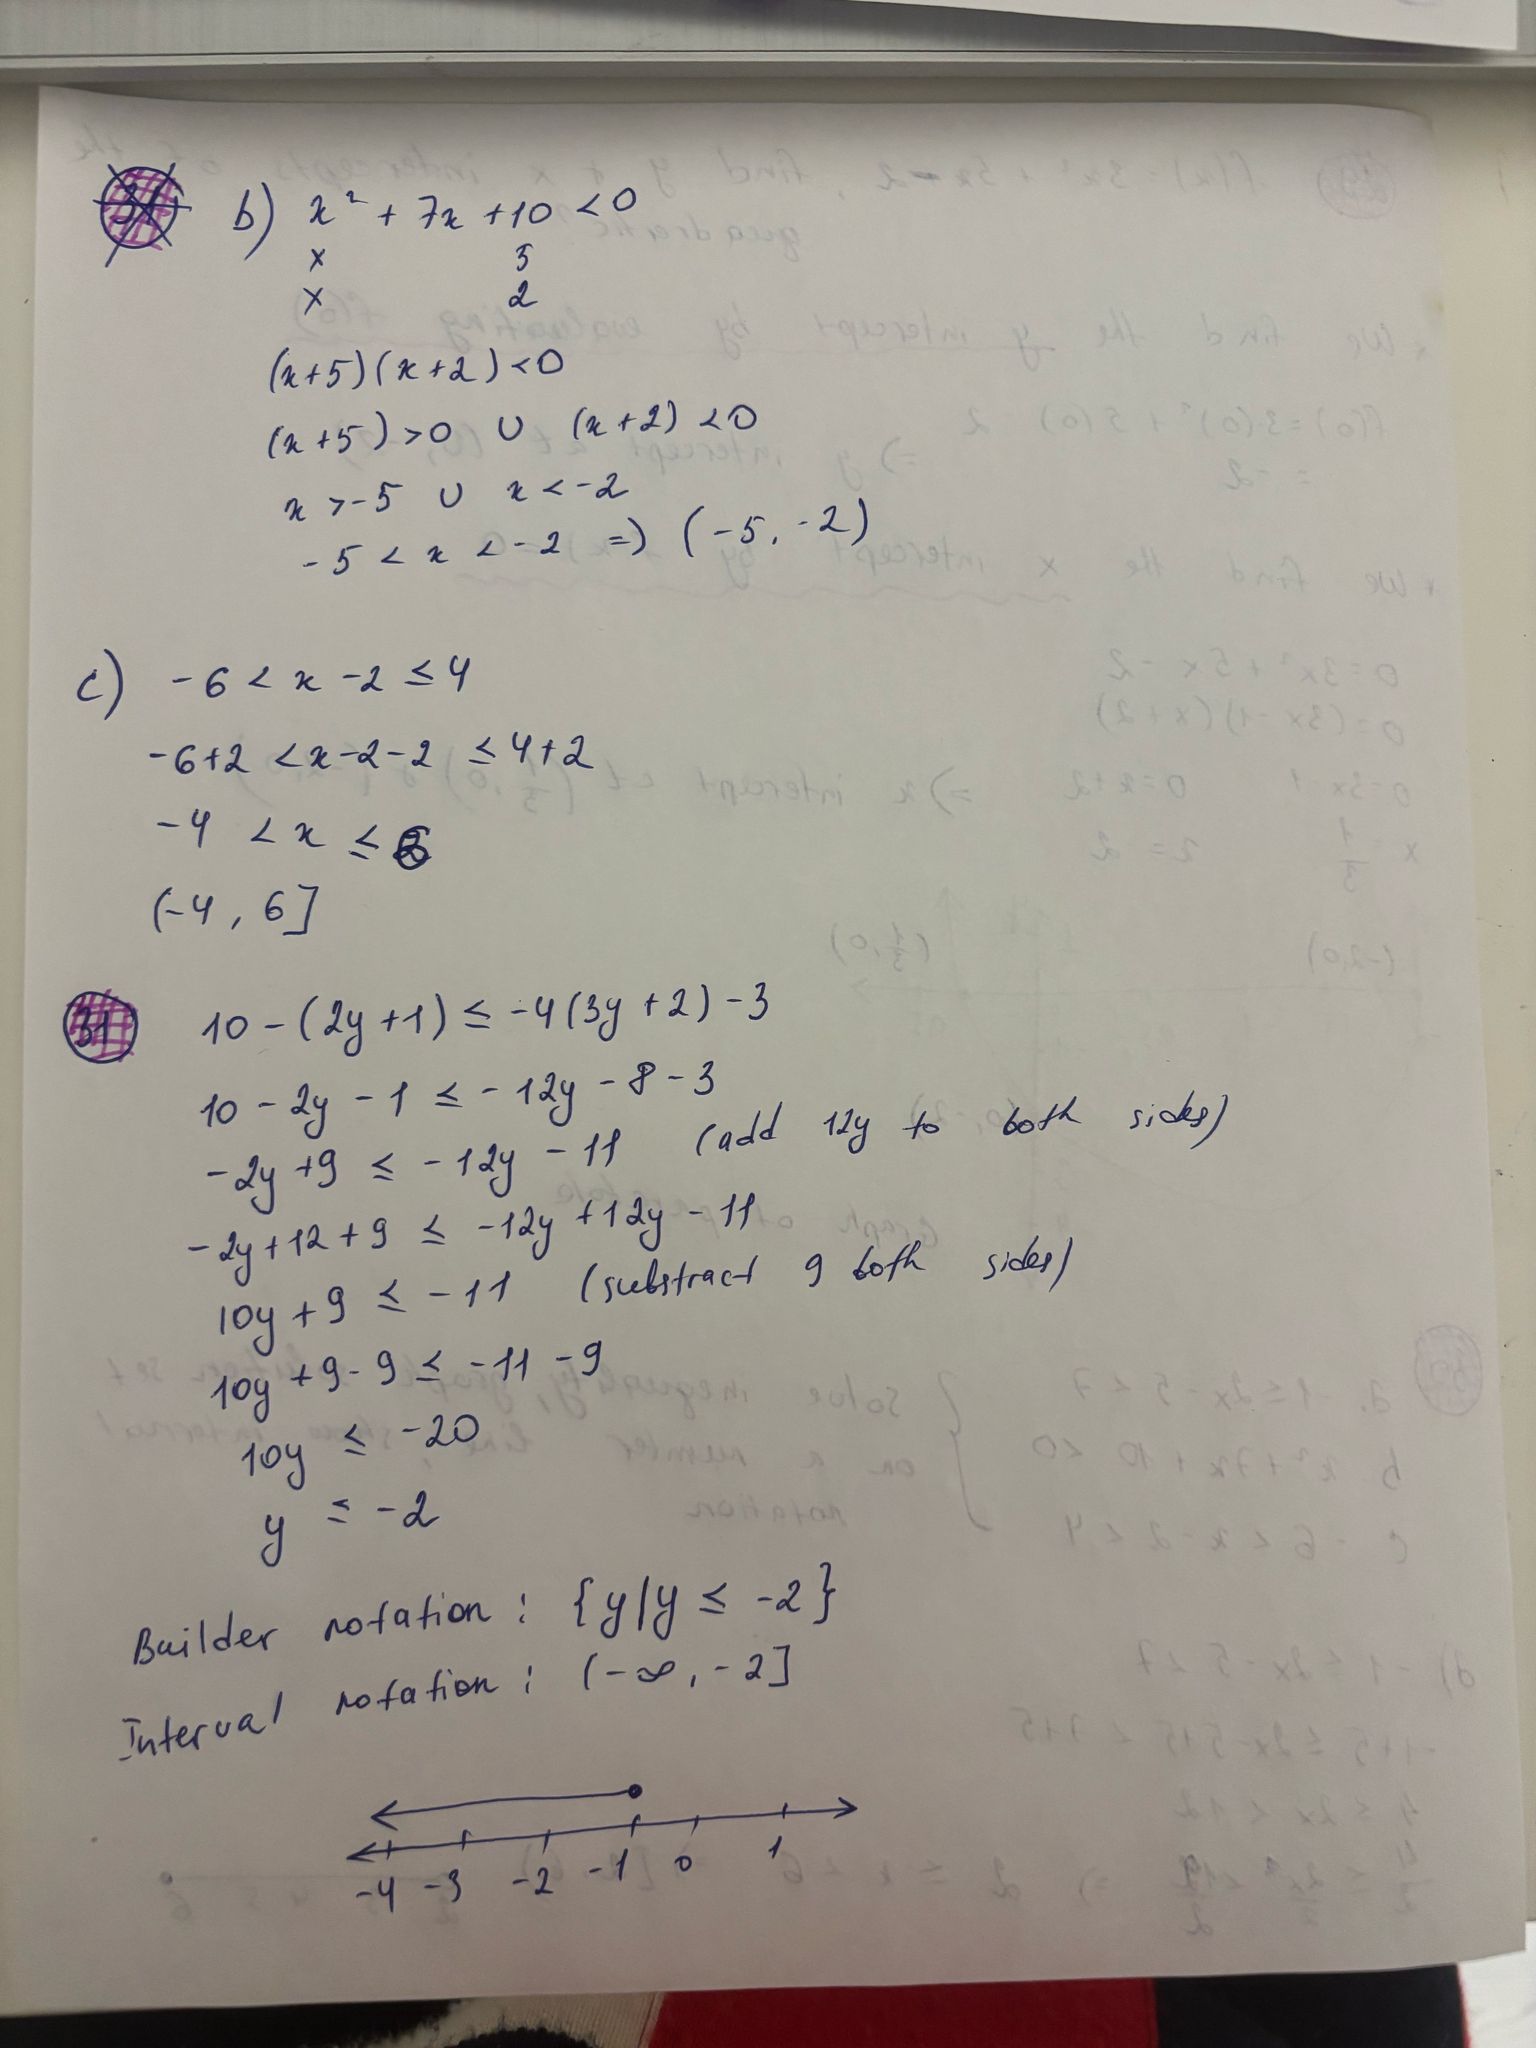 31 b) x² + 7x + 10 < 0
x 5
x 2
(x+5)(x+2) < 0
(x+5) > 0 ∪ (x+2) < 0
x > -5 ∪ x < -2
-5 < x < -2 => (-5, -2)
c) -6 < x - 2 ≤ 4
-6+2 < x-2-2 ≤ 4+2
-4 < x ≤ 6
(-4, 6]
31 10 - (2y+1) ≤ -4(3y+2) - 3
10 - 2y - 1 ≤ -12y - 8 - 3
-2y + 9 ≤ -12y - 11 (add 12y to both sides)
-2y + 12 + 9 ≤ -12y + 12y - 11
10y + 9 ≤ -11 (substract 9 both sides)
10y + 9 - 9 ≤ -11 - 9
10y ≤ -20
y ≤ -2
Builder notation: {y|y ≤ -2}
Interval notation: (-∞, -2]
-4 -3 -2 -1 0 1